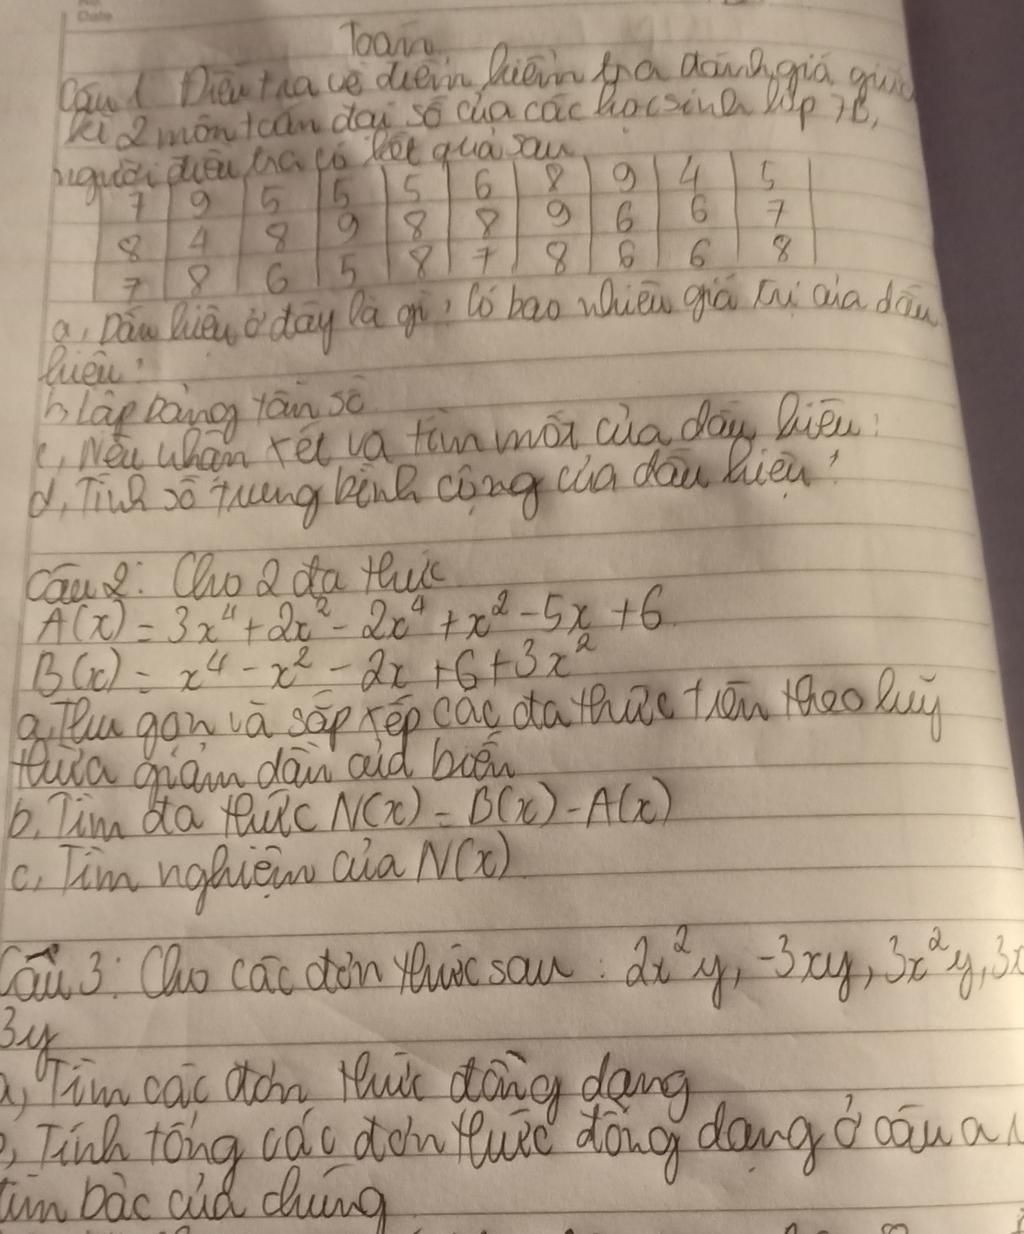 Date
Toán
Câu 1 Điều tra về điểm kiểm tra đánh giá giữa
kì 2 môn toán đại số của các học sinh lớp 7B,
người điều tra có kết quả sau
7 9 5 5 5 6 8 9 4 5
8 4 8 9 8 8 9 6 6 7
7 8 6 5 8 7 8 6 6 8
a, Dấu hiệu ở đây là gì? Có bao nhiêu giá trị của dấu
hiệu?
b, Lập bảng tần số
c, Nêu nhận xét và tìm mốt của dấu hiệu?
d, Tính số trung bình cộng của dấu hiệu?
Câu 2: Cho 2 đa thức
A(x) = 3x⁴ + 2x² - 2x⁴ + x² - 5x + 6
B(x) = x⁴ - x² - 2x + 6 + 3x²
a, Thu gọn và sắp xếp các đa thức trên theo luỹ
thừa giảm dần của biến
b, Tìm đa thức N(x) = B(x) - A(x)
c, Tìm nghiệm của N(x)
Câu 3: Cho các đơn thức sau: 2x²y, -3xy, 3x²y, 3x
3y
a, Tìm các đơn thức đồng dạng
b, Tính tổng các đơn thức đồng dạng ở câu a,
tìm bậc của chúng